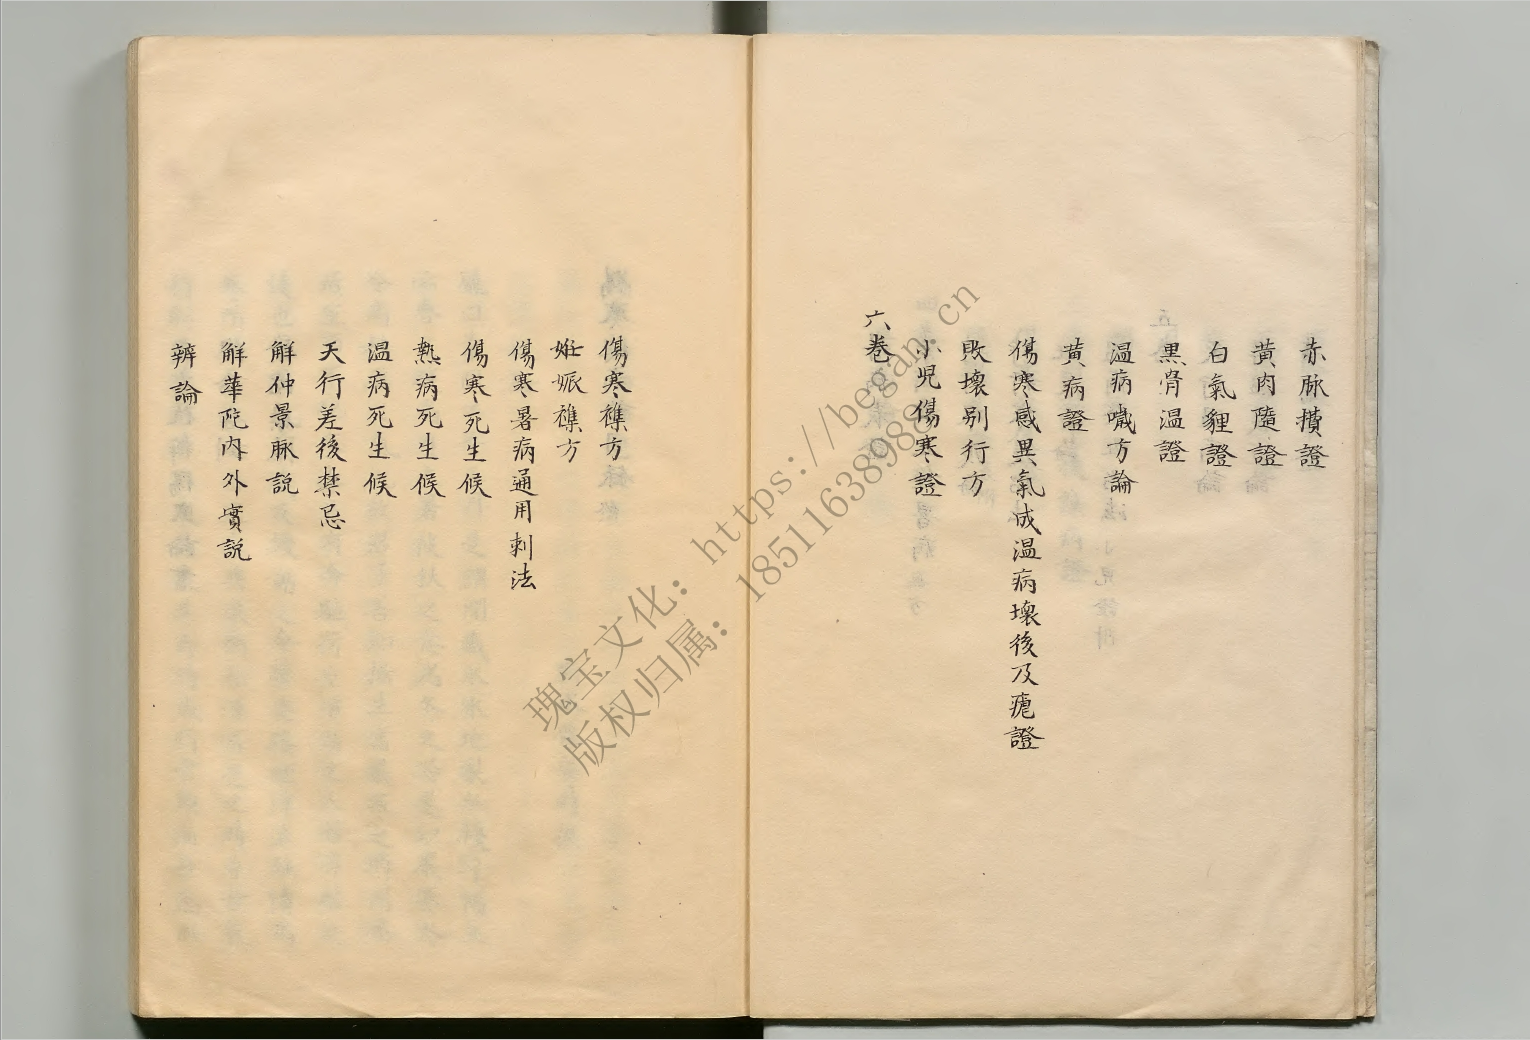 赤脉攢證
黃肉隨證
白氣貍證
黑骨温證
温病噦方論
黄病證
傷寒感異氣成温病壞後及瘧證
敗壞别行方
小児傷寒證
六卷
傷寒襍方
妊娠襍方
傷寒暑病通用刺法
傷寒死生候
熱病死生候
温病死生候
天行差後禁忌
解仲景脉説
解華陀内外實説
辨論
瑰宝文化：https://began.cn
版权归属：18511638986